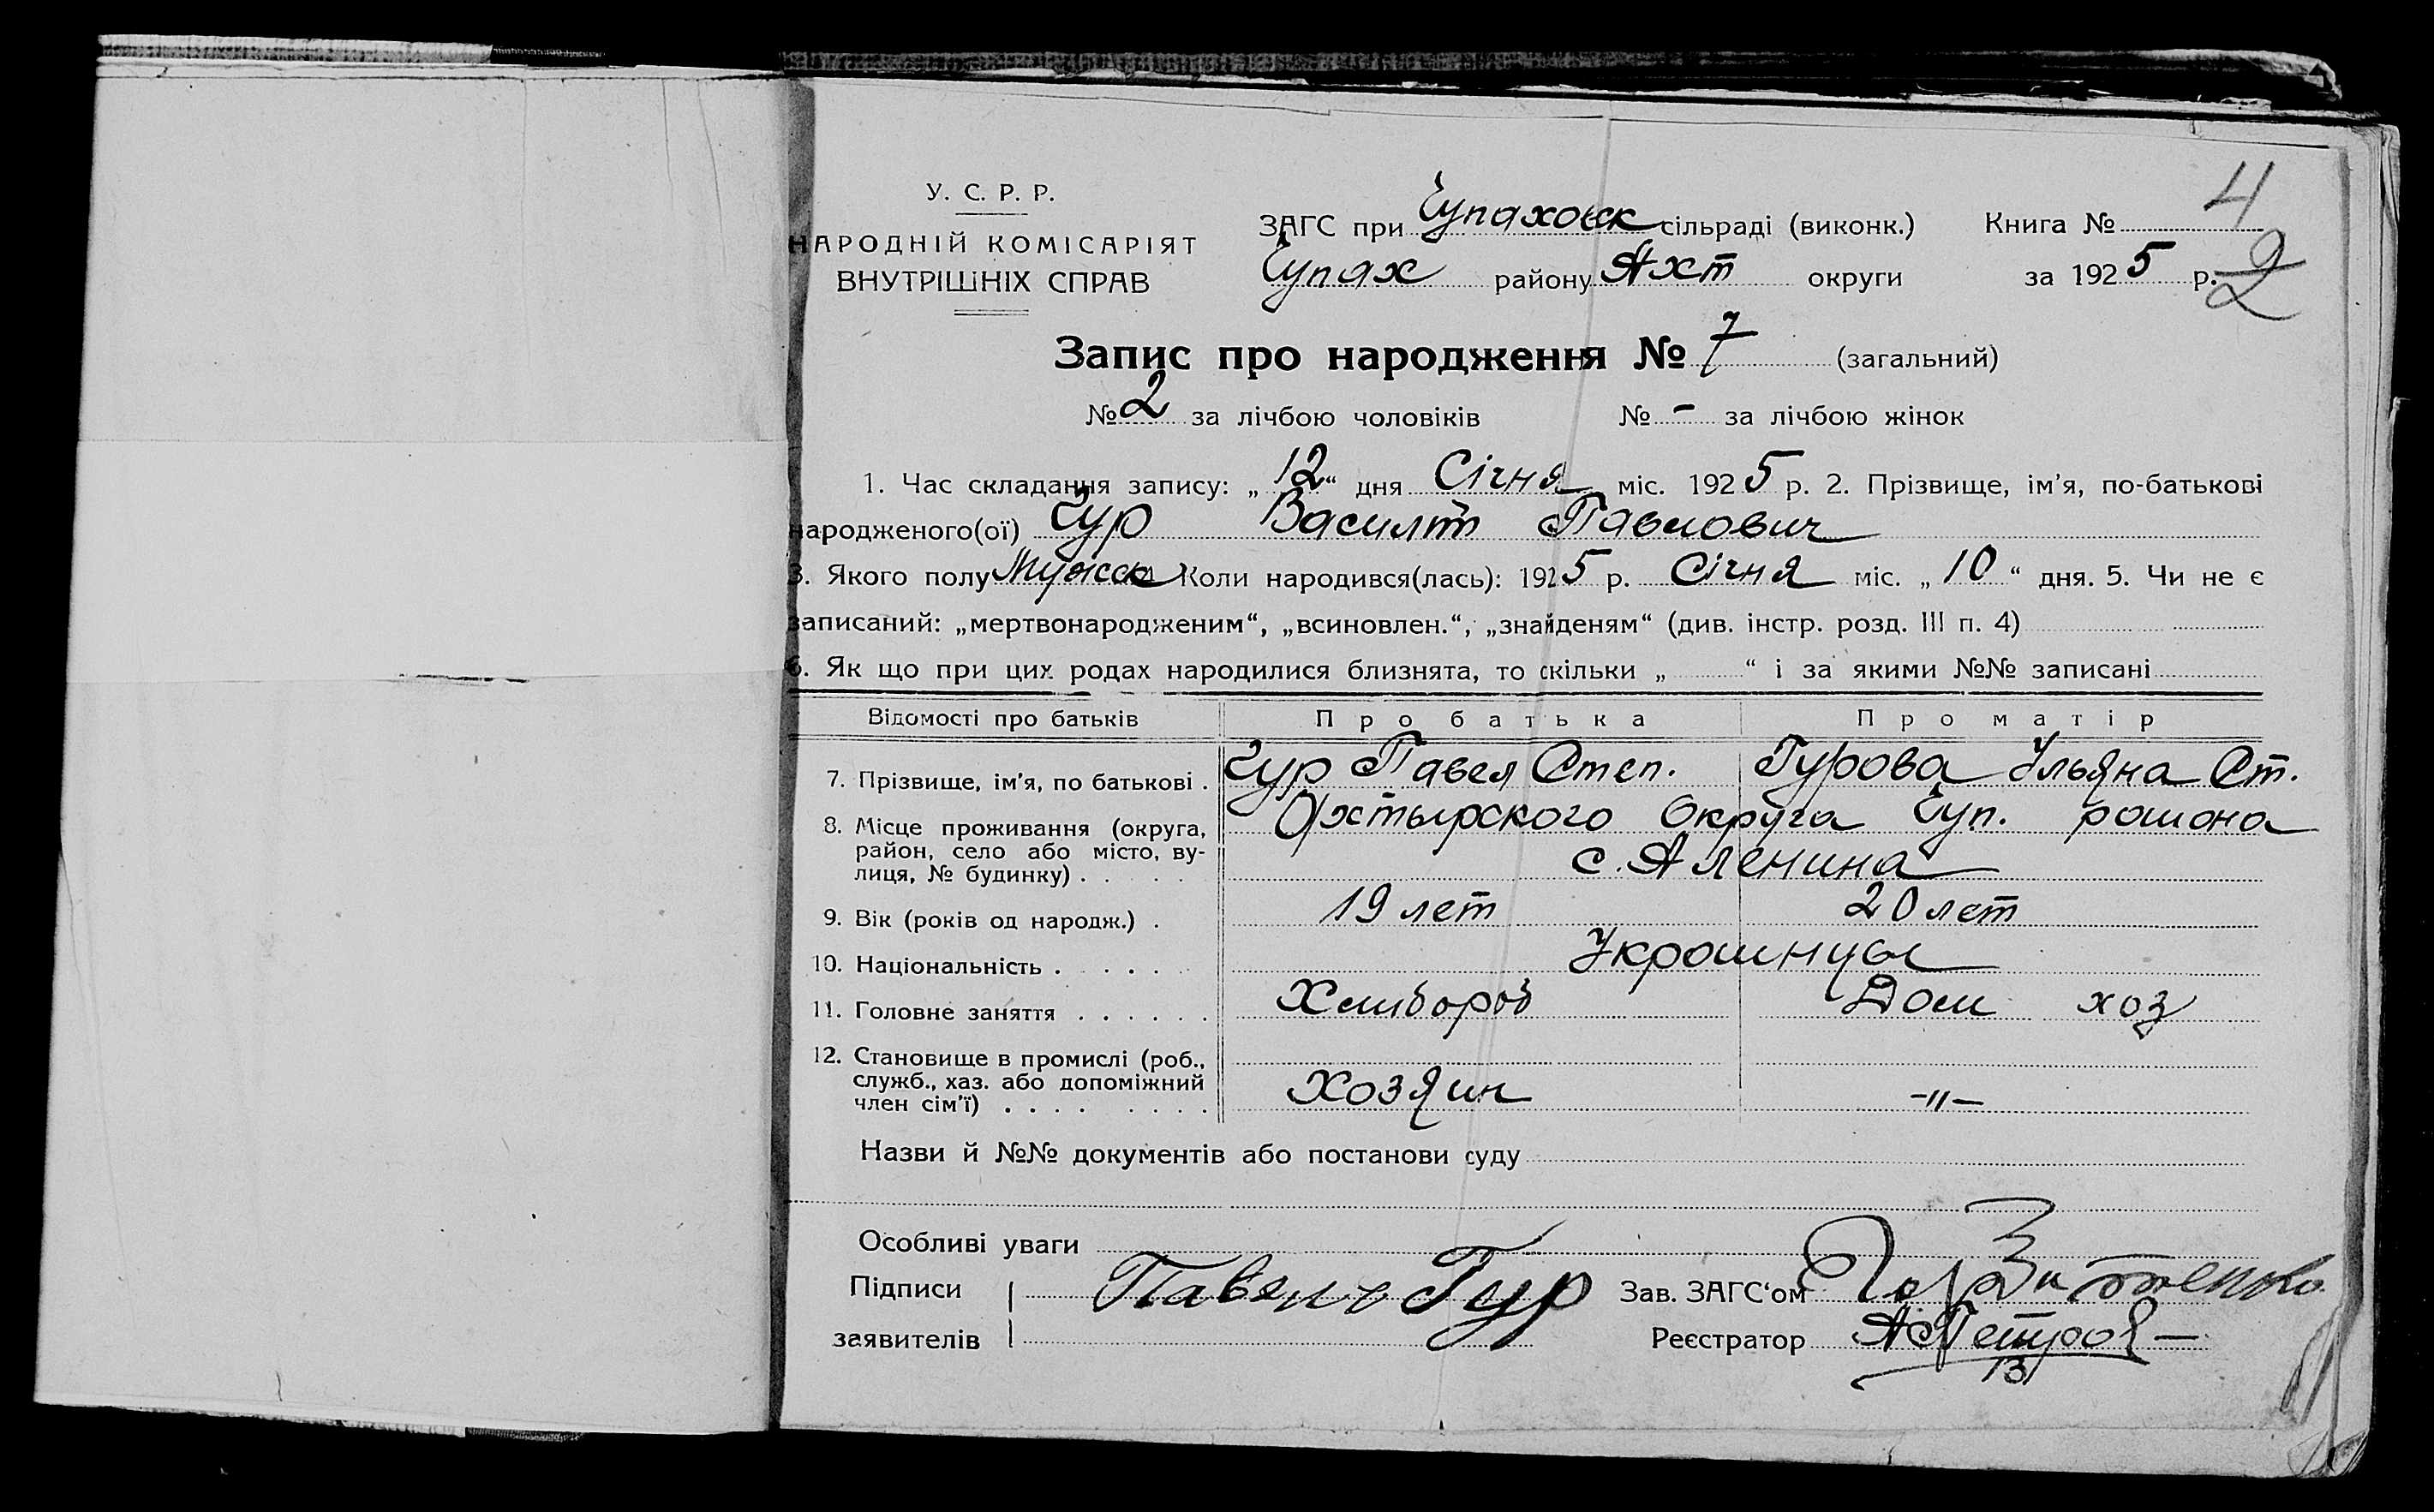 У. С. Р. Р.
НАРОДНІЙ КОМІСАРІЯТ
ВНУТРІШНІХ СПРАВ
ЗАГС при Чупаховск сільраді (виконк.) Книга № 4
Чупах району Ахт округи за 1925 р. 2
Запис про народження № 7 (загальний)
№ 2 за лічбою чоловіків № - за лічбою жінок
1. Час складання запису: „12“ дня Січня міс. 1925 р. 2. Прізвище, ім’я, по-батькові
народженого(ої) Гур Василій Павлович
3. Якого полу Мужск Коли народився(лась): 1925 р. Січня міс. „10“ дня. 5. Чи не є
записаний: „мертвонародженим“, „всиновлен.“, „знайденям“ (див. інстр. розд. III п. 4)
6. Як що при цих родах народилися близнята, то скільки „ “ і за якими №№ записані
Відомості про батьків Про батька Про матір
7. Прізвище, ім’я, по батькові . Гур Павел Степ. Гурова Ульяна Ст.
8. Місце проживання (округа, район, село або місто, ву-
лиця, № будинку) . . . Ахтырского Округа Чуп. района
с. Аленина
9. Вік (років од народж.) . 19 лет 20 лет
10. Національність . . . . . Украинцы
11. Головне заняття . . . . . . Хлибороб Дом хоз
12. Становище в промислі (роб.,
служб., хаз. або допоміжний
член сім’ї) . . . . . . . . Хозяин -〃-
Назви й №№ документів або постанови суду
Особливі уваги
Підписи Павель Гур Зав. ЗАГС‘ом
заявителів Реєстратор А Петров